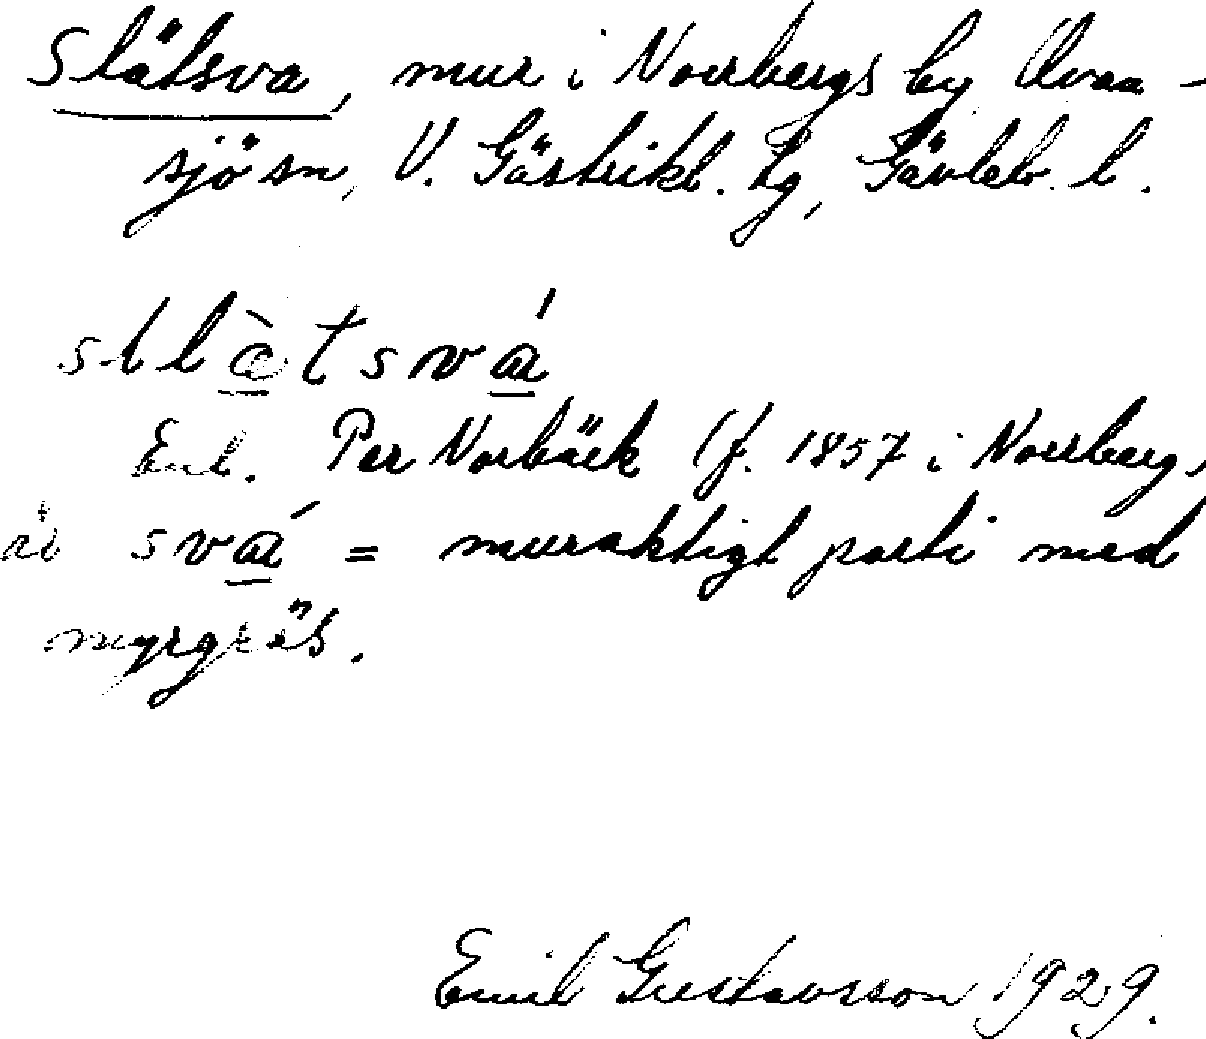 Slätsva, mur i Norrbergs by Ovan-
sjö sn, V. Gästrikl. tg, Gävleb. l.
stlàtsvá
Enl. Per Norbäck (f. 1857 i Norrberg,
är svá = muraktigt parti med
myrgräs.
Emil Gustavsson 1929.